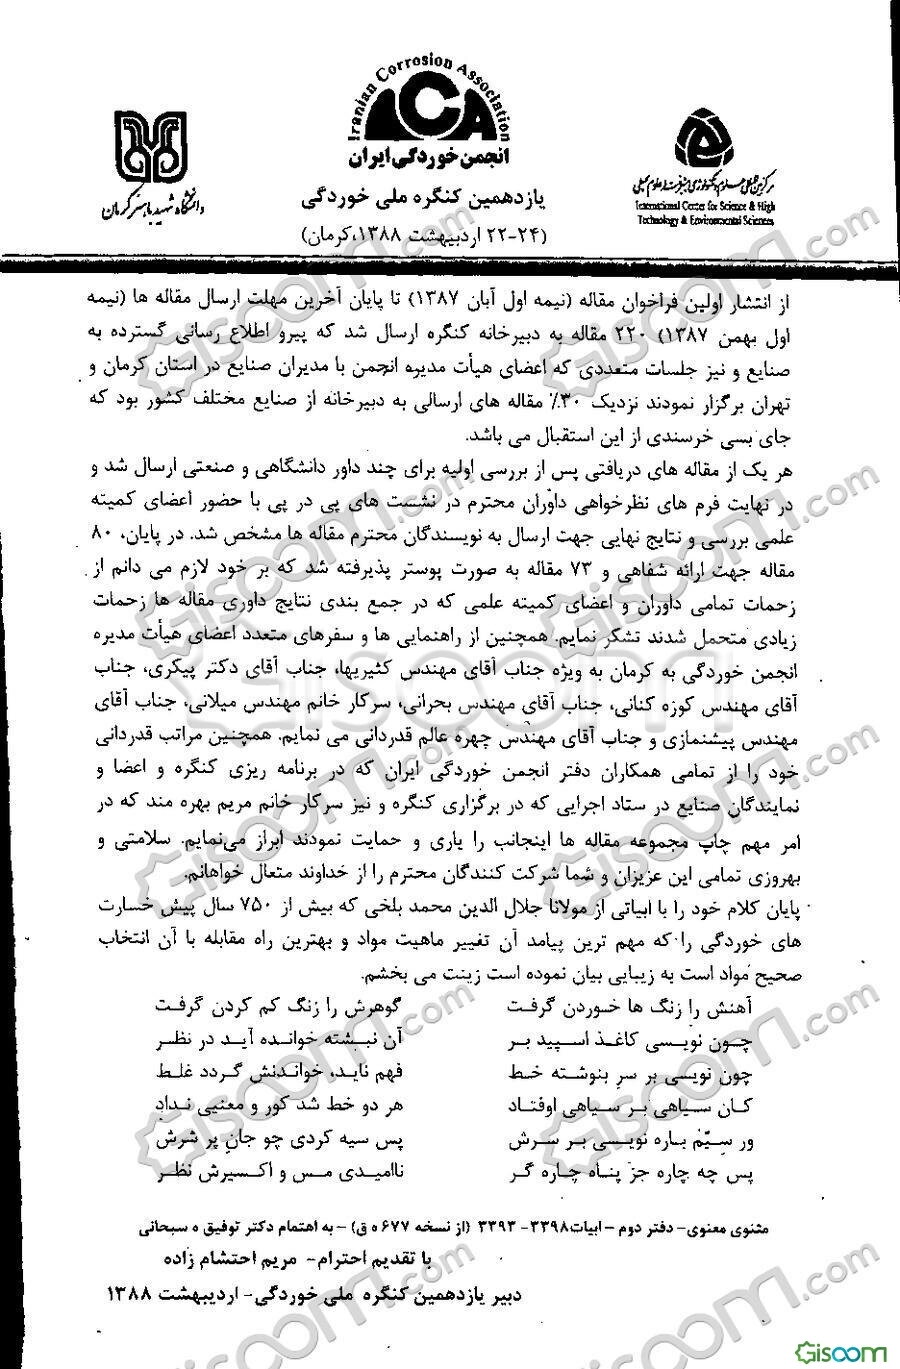 Iranian Corrosion Association
ICA
انجمن خوردگی ایران
یازدهمین کنگره ملی خوردگی
(۲۴-۲۲ اردیبهشت ۱۳۸۸، کرمان)
دانشگاه شهید باهنر کرمان
International Center for Science & High
Technology & Environmental Sciences
از انتشار اولین فراخوان مقاله (نیمه اول آبان ۱۳۸۷) تا پایان آخرین مهلت ارسال مقاله ها (نیمه
اول بهمن ۱۳۸۷) ۲۲۰ مقاله به دبیرخانه کنگره ارسال شد که پیرو اطلاع رسانی گسترده به
صنایع و نیز جلسات متعددی که اعضای هیأت مدیره انجمن با مدیران صنایع در استان کرمان و
تهران برگزار نمودند نزدیک ۳۰٪ مقاله های ارسالی به دبیرخانه از صنایع مختلف کشور بود که
جای بسی خرسندی از این استقبال می باشد.
هر یک از مقاله های دریافتی پس از بررسی اولیه برای چند داور دانشگاهی و صنعتی ارسال شد و
در نهایت فرم های نظرخواهی داوران محترم در نشست های پی در پی با حضور اعضای کمیته
علمی بررسی و نتایج نهایی جهت ارسال به نویسندگان محترم مقاله ها مشخص شد. در پایان، ۸۰
مقاله جهت ارائه شفاهی و ۷۳ مقاله به صورت پوستر پذیرفته شد که بر خود لازم می دانم از
زحمات تمامی داوران و اعضای کمیته علمی که در جمع بندی نتایج داوری مقاله ها زحمات
زیادی متحمل شدند تشکر نمایم. همچنین از راهنمایی ها و سفرهای متعدد اعضای هیأت مدیره
انجمن خوردگی به کرمان به ویژه جناب آقای مهندس کثیریها، جناب آقای دکتر پیکری، جناب
آقای مهندس کوزه کنانی، جناب آقای مهندس بحرانی، سرکار خانم مهندس میلانی، جناب آقای
مهندس پیشنمازی و جناب آقای مهندس چهره عالم قدردانی می نمایم. همچنین مراتب قدردانی
خود را از تمامی همکاران دفتر انجمن خوردگی ایران که در برنامه ریزی کنگره و اعضا و
نمایندگان صنایع در ستاد اجرایی که در برگزاری کنگره و نیز سرکار خانم مریم بهره مند که در
امر مهم چاپ مجموعه مقاله ها اینجانب را یاری و حمایت نمودند ابراز می‌نمایم. سلامتی و
بهروزی تمامی این عزیزان و شما شرکت کنندگان محترم را از خداوند متعال خواهانم.
پایان کلام خود را با ابیاتی از مولانا جلال الدین محمد بلخی که بیش از ۷۵۰ سال پیش خسارت
های خوردگی را که مهم ترین پیامد آن تغییر ماهیت مواد و بهترین راه مقابله با آن انتخاب
صحیح مواد است به زیبایی بیان نموده است زینت می بخشم.
آهنش را زنگ ها خوردن گرفت گوهرش را زنگ کم کردن گرفت
چون نویسی کاغذ اسپید بر آن نبشته خوانده آید در نظر
چون نویسی بر سرِ بنوشته خط فهم ناید، خواندنش گردد غلط
کان سیاهی بر سیاهی اوفتاد هر دو خط شد کور و معنیی نداد
ور سیّم باره نویسی بر سرش پس سیه کردی چو جانِ پر شرش
پس چه چاره جز پناه چاره گر ناامیدی مس و اکسیرش نظر
مثنوی معنوی- دفتر دوم – ابیات ۳۳۹۸- ۳۳۹۳ (از نسخه ۶۷۷ ه ق) – به اهتمام دکتر توفیق ه سبحانی
با تقدیم احترام- مریم احتشام زاده
دبیر یازدهمین کنگره ملی خوردگی- اردیبهشت ۱۳۸۸
Gisoom